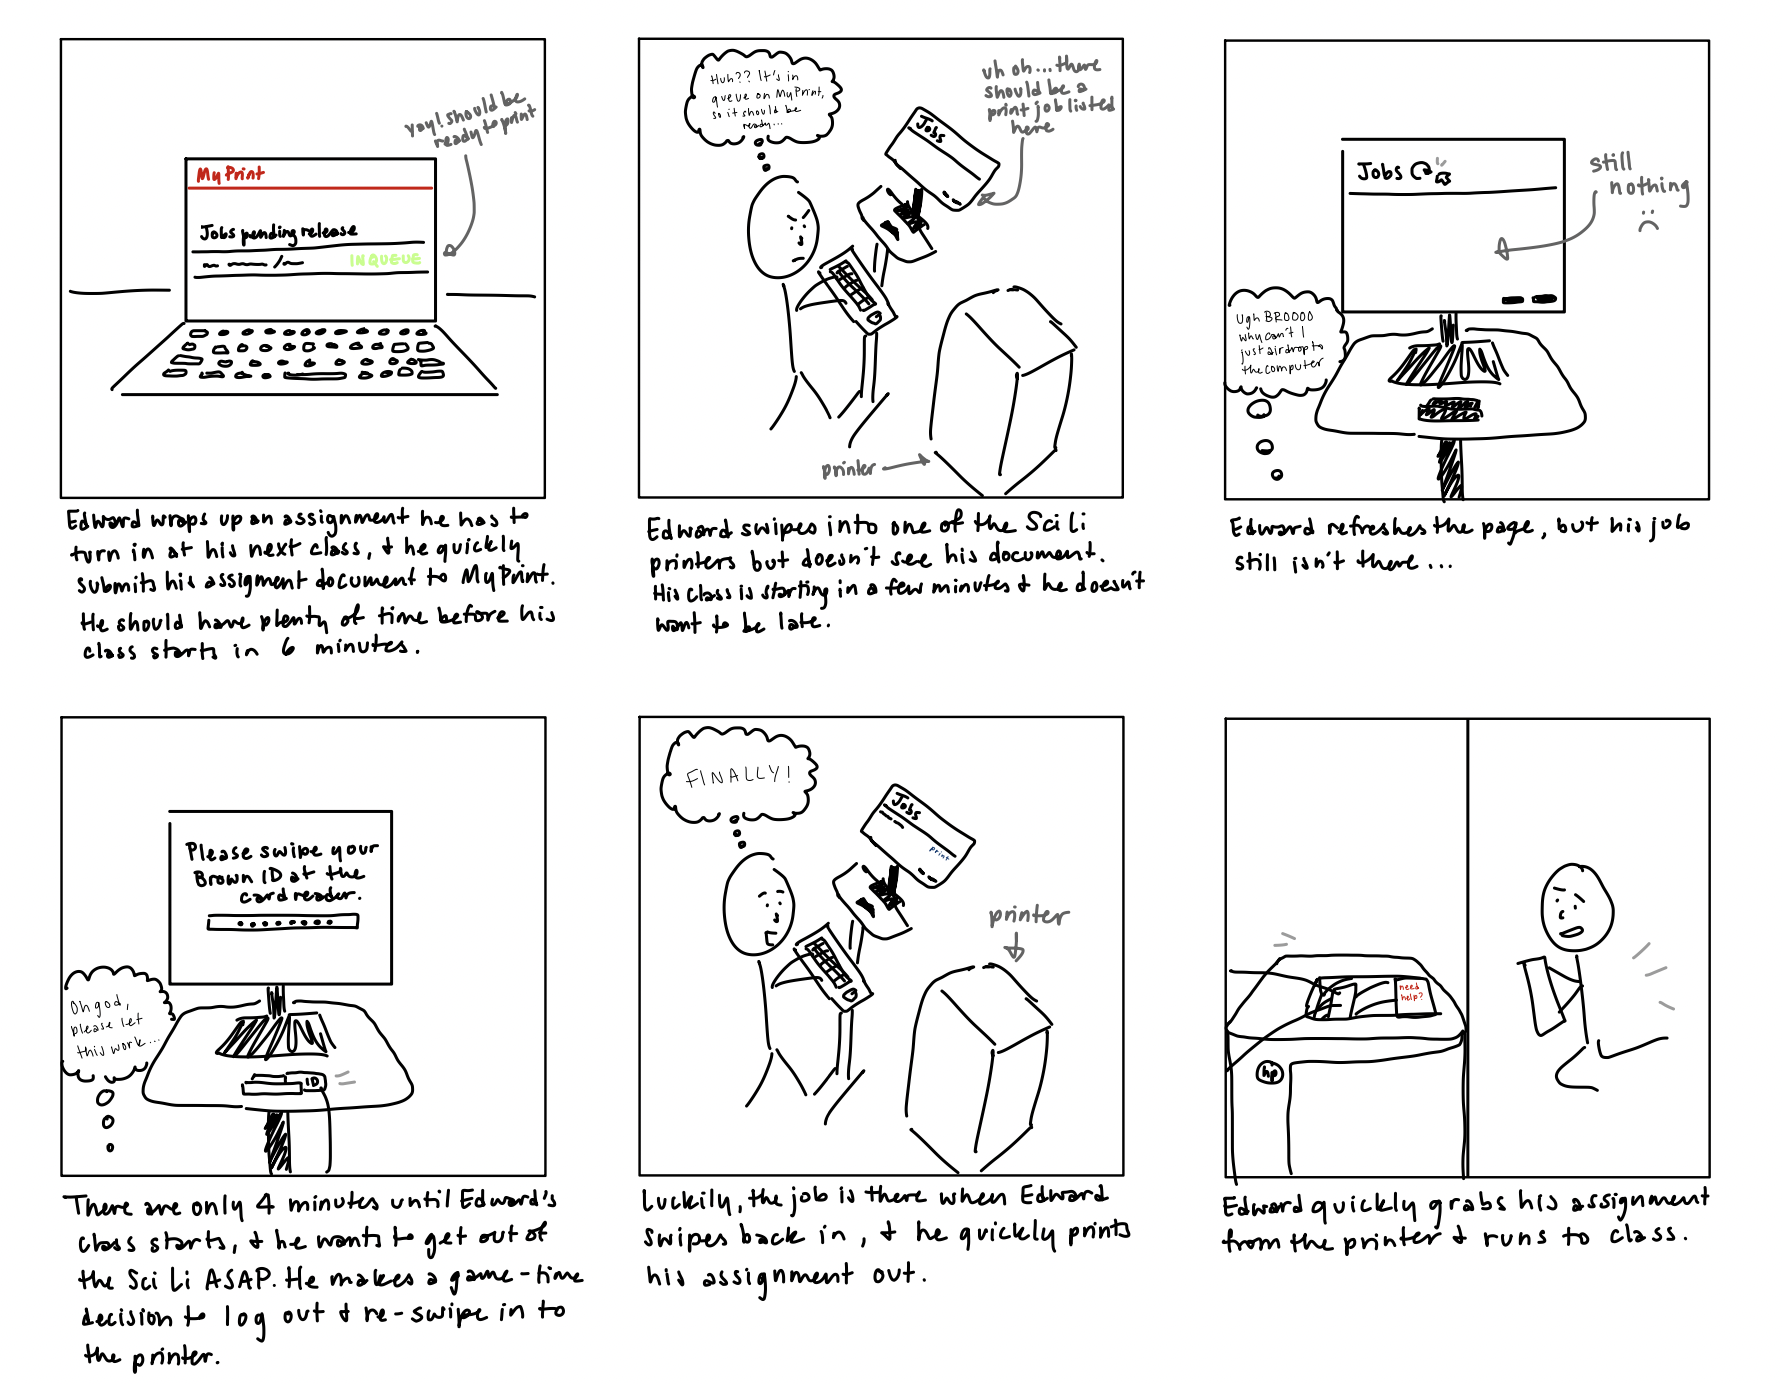 yay! should be
ready to print
MyPrint
Jobs pending release
IN QUEUE
Edward wraps up an assignment he has to
turn in at his next class, & he quickly
submits his assigment document to MyPrint.
He should have plenty of time before his
class starts in 6 minutes.
Huh?? It's in
queue on MyPrint,
so it should be
ready...
uh oh...there
should be a
print job listed
here
Jobs
printer
Edward swipes into one of the Sci Li
printers but doesn't see his document.
His class is starting in a few minutes & he doesn't
want to be late.
Jobs
still
nothing
Ugh BROOOO
why can't I
just airdrop to
the computer
Edward refreshes the page, but his job
still isn't there...
Please swipe your
Brown ID at the
card reader.
Oh god,
please let
this work...
ID
There are only 4 minutes until Edward's
class starts, & he wants to get out of
the Sci Li ASAP. He makes a game-time
decision to log out & re-swipe in to
the printer.
FINALLY!
Jobs
print
printer
Luckily, the job is there when Edward
swipes back in, & he quickly prints
his assignment out.
need
help?
hp
Edward quickly grabs his assignment
from the printer & runs to class.